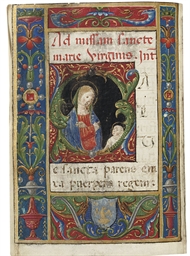 Ad missam sancte
marie Virginis. Int
A
e sancta parens eni
xa puerpera regem: